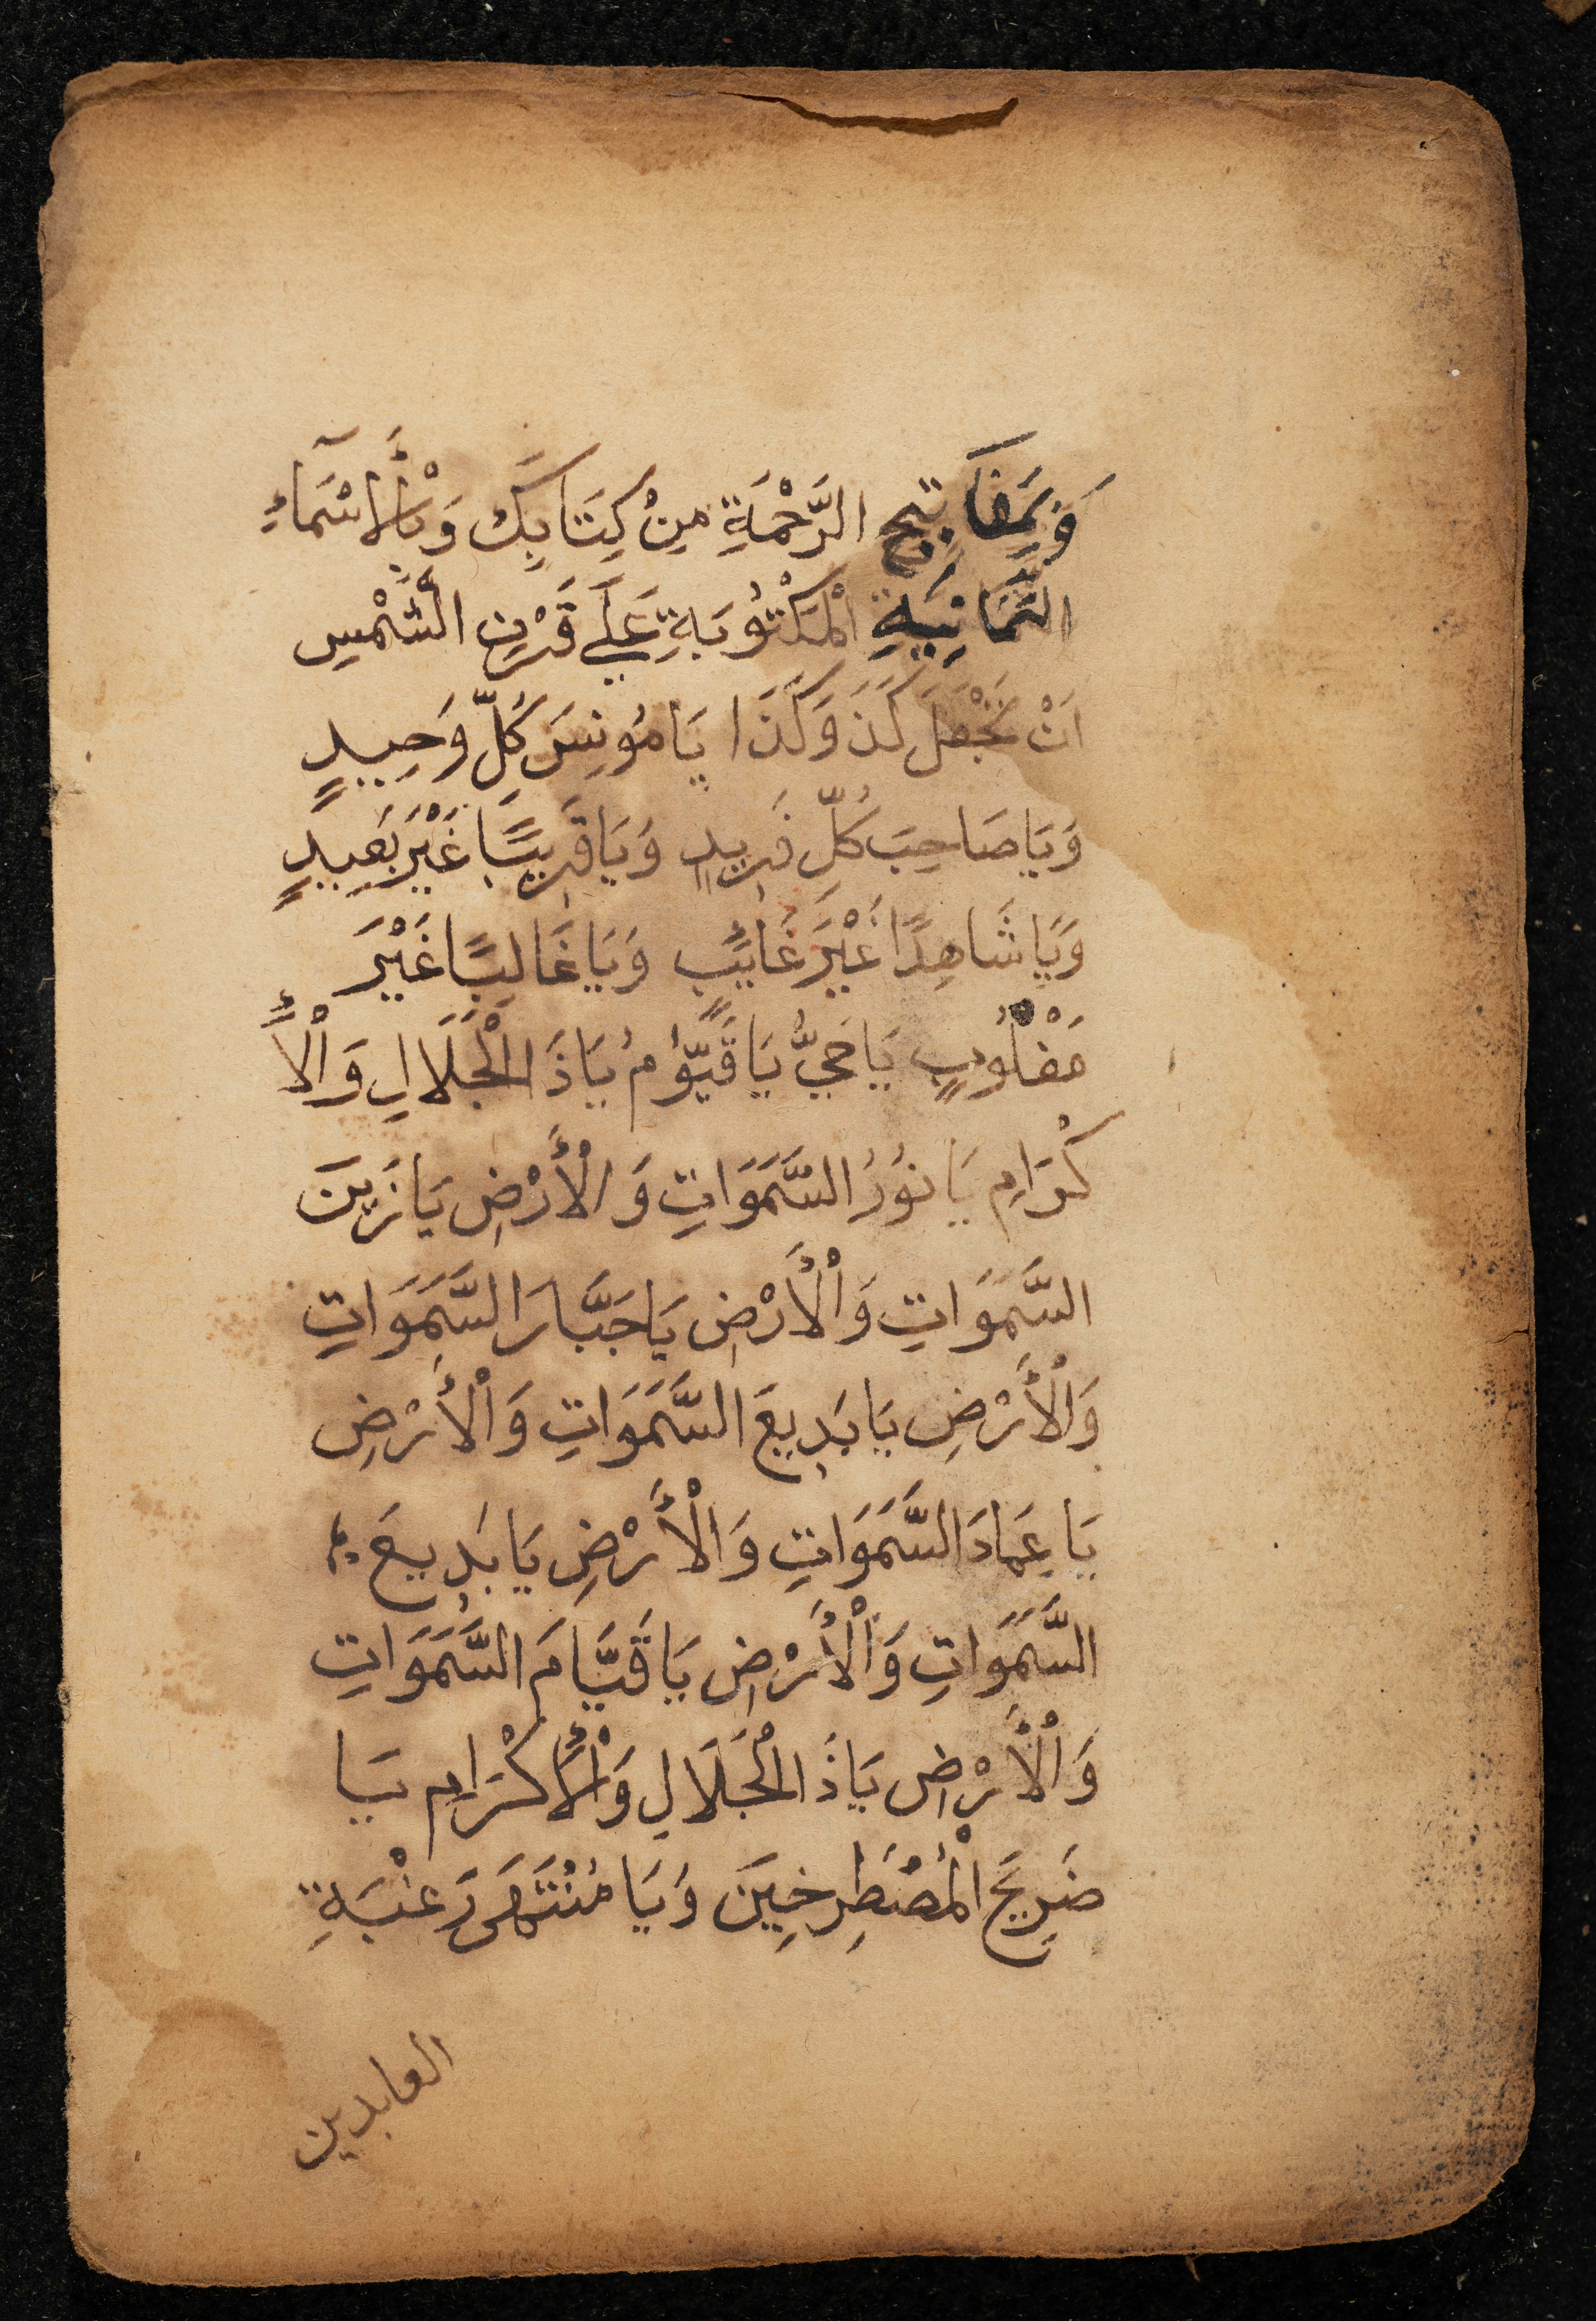 وَبِمَفَاتِيحِ الرَّحْمَةِ مِنْ كِتَابِكَ وَبْأَلاسْمَآءِ
الثَّمَانِيَةِ الْمَكْتُوُبَةِ عَلَي قَرْنِ الشَّمْسِ
اَنْ تَجْعَلَ كَذَ وَكَذَا يَا مُونِسَ كُلِّ وَحِيدٍ
وَيَا صَاحِبَ كُلِّ فَرِيدٍ وَيَا قَرِيبًا غَيْرَ بَعِيدٍ
وَيَا شَاهِدًا غَيْرَ غَايَبٍ وَيَا غَالِبًا غَيْرَ
مَغْلُوبٍ يَا حَيُّ يَا قَيُّوُمُ يَا ذَا الْجَلَالِ وَالْأَ
كْرَامِ يَا نوُرُ السَّمَوَاتِ وَالْأَرْضِ يَا زَيْنَ
السَّمَوَاتِ وَالْأَرْضِ يَا جَبَّارَ السَّمَوَاتِ
وَالْأَرْضِ يَا بَدِيعَ السَّمَوَاتِ وَالْأَرْضِ
يَا عِمَادَ السَّمَوَاتِ وَالْأَرْضِ يَا بَدِيعَ
السَّمَوَاتِ وَالْأَرْضِ يَا قَيَّامَ السَّمَوَاتِ
وَالْأَرْضِ يَا ذَا الْجَلَالِ وَالْأَكْرَامِ يَا
ضَرِيحَ الْمُصْطَرِخِينَ وَيَا مُنْتَهَى رَغْبَةِ
العابدين